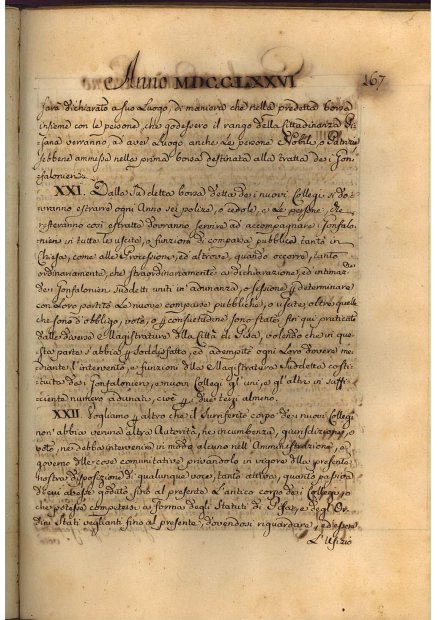 Anno MDCCLXXVI
167
sarà dichiarato a suo Luogo, di maniera che nella predetta borsa
insieme con le persone, che godessero il rango della Cittadinanza Pi-
sana verranno ad aver Luogo anche Le persone Nobili, o Patrizie
sebbene ammesse nella prima borsa destinata alla tratta dei Gon-
falonieri.
XXI. Dalla suddetta borsa detta dei nuovi Collegi si do-
vranno estrarre ogni Anno sei polize, o cedole, e Le persone, che
resteranno così estratte dovranno servire ad accompagnare i Gonfalo-
nieri in tutte le uscite, o funzioni di comparsa pubblica tanto in
Chiesa, come alle Processioni, ed altrove, quando occorre, tanto
ordinariamente, che straordinariamente a dichiarazione, ed intimaz.
dei Gonfalonieri suddetti uniti in adunanza, o sessione p determinare
con Loro partito Le nuove comparse pubbliche, o uscite, oltre quelle
che sono d'obbligo, voto, o p consuetudine sono state fin qui praticate
dalle diverse Magistrature della Città di Pisa, volendo che in que-
sta parte s'abbia p soddisfatto, ed adempito ogni Loro dovere me-
diante l'intervento, e funzioni della Magistratura suddetta costi-
tuita dei Gonfalonieri, e nuovi Collegi gl'uni, e gl'altri in suffi-
ciente numero adunati, cioè p i due terzi almeno.
XXII. Vogliamo p altro che il surriferito corpo dei nuovi Collegi
non abbia veruna altra Autorità, ne incumbenza, giurisdizione, o
voto, ne debba intervenire in modo alcuno nell'Amministrazione, o
governo delle cose comunitative privandolo in vigore della presente
nostra disposizione di qualunque voce, tanto attiva, quanto passiva
di cui avesse goduto fino al presente L'antico corpo dei Collegi, o
che potesse competersi a forma degli Statuti di Pisa, e degli Or-
dini stati veglianti fino al presente, dovendosi riguardare, ed essere
L'Ufizio